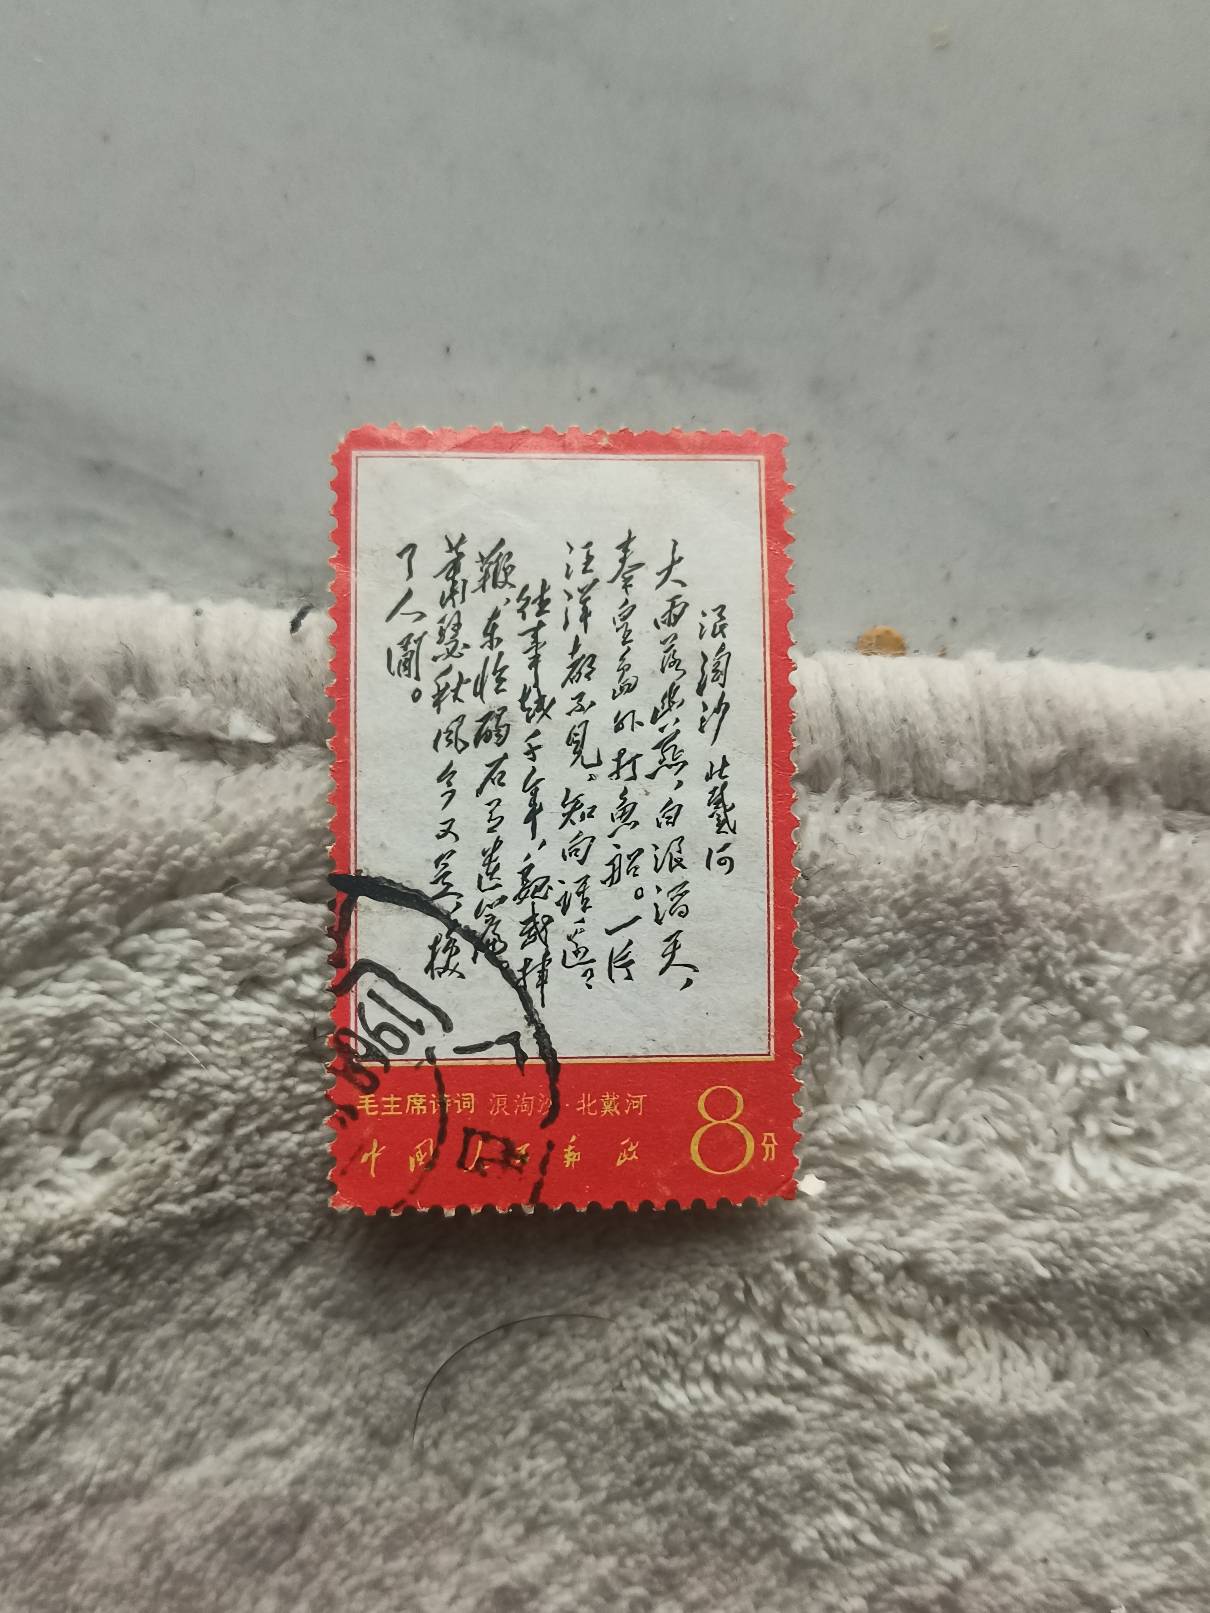 浪淘沙 北戴河
大雨落幽燕，白浪滔天，
秦皇岛外打鱼船。一片
汪洋都不见，知向谁边？
往事越千年，魏武挥
鞭，东临碣石有遗篇。
萧瑟秋风今又是，换
了人间。
毛主席诗词 浪淘沙·北戴河
中国人民邮政
8分
196